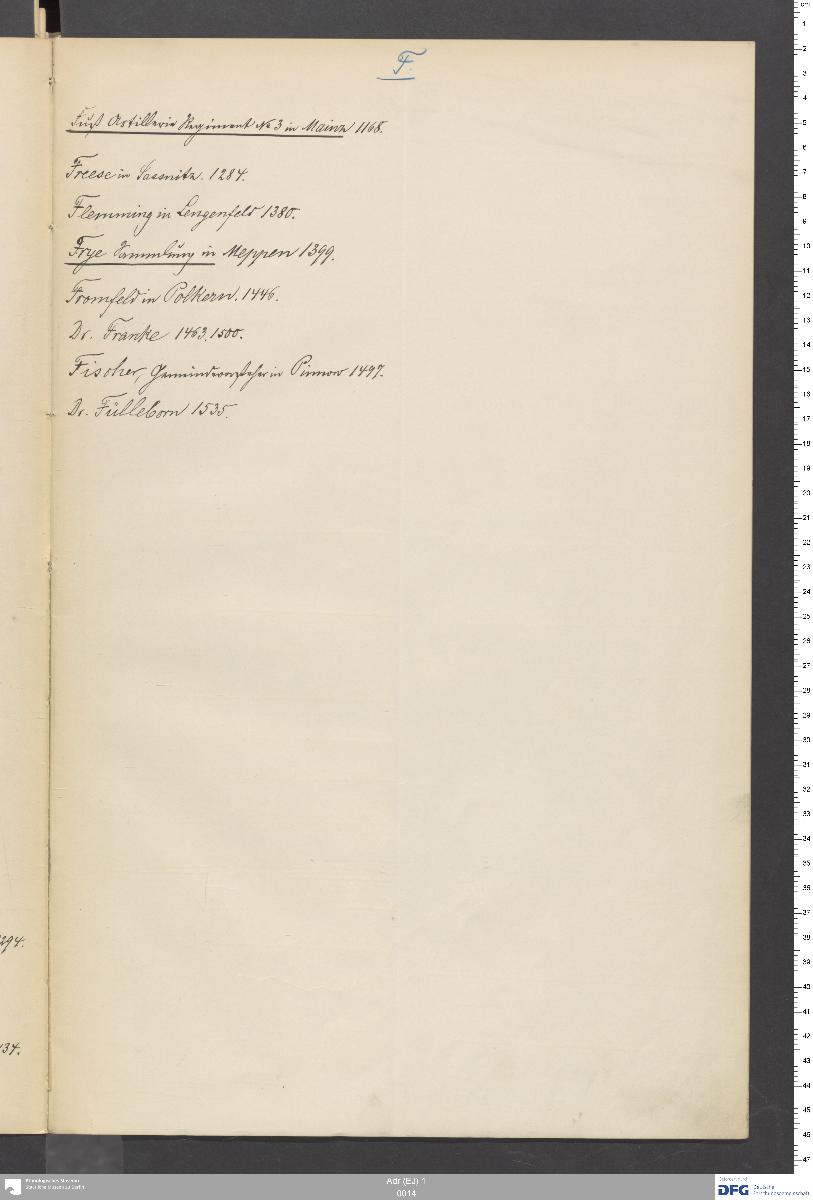 F.
Fuß Artillerie Regiment No 3 in Mainz 1168.
Freese in Sassnitz. 1284.
Flemming in Lengenfeld 1380.
Frye Sammlung in Meppen 1399.
Fromfeld in Polkern. 1446.
Dr. Franke 1463. 1500.
Fischer, Gemeindevorsteher in Pinnow 1497.
Dr. Fülleborn 1535.
294.
134.
Ethnologisches Museum
Staatliche Museen zu Berlin
Adr (EJ) 1
0014
DFG Deutsche
Forschungsgemeinschaft